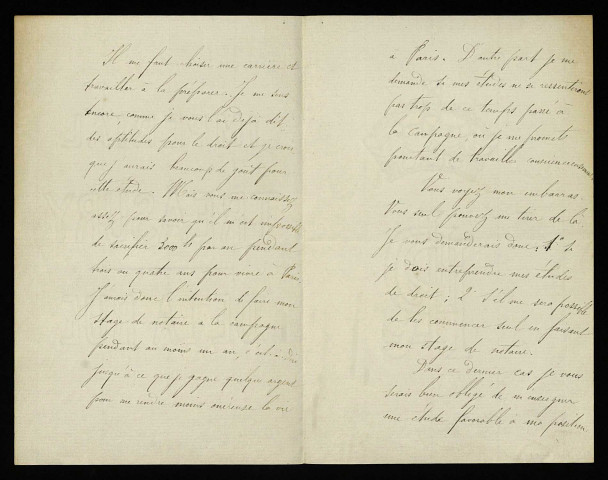 Il me faut choisir une carrière et
travailler à la préparer. Je me sens
encore, comme je vous l'ai déjà dit
des aptitudes pour le droit et je crois
que j'aurais beaucoup de goût pour
cette étude. Mais vous me connaissez
assez pour savoir qu'il m'est impossible
de sacrifier 3000 f par an pendant
trois ou quatre ans pour vivre à Paris
J'avais donc l'intention de faire mon
stage de notaire à la campagne
pendant au moins un an, c'est-à-dire
jusqu'à ce que je gagne quelque argent
pour me rendre moins onéreuse la vie
à Paris. D'autre part je me
demande si mes études ne se ressentiront
pas trop de ce temps passé à
la campagne, où je me promets
pourtant de travailler consciencieusement
Vous voyez mon embarras
Vous seul pouvez me tirer de là
Je vous demanderais donc: 1° si
je dois entreprendre mes études
de droit; 2° s'il me sera possible
de les commencer seul en faisant
mon stage de notaire.
Dans ce dernier cas je vous
serais bien obligé de m'enseigner
une étude favorable à ma position